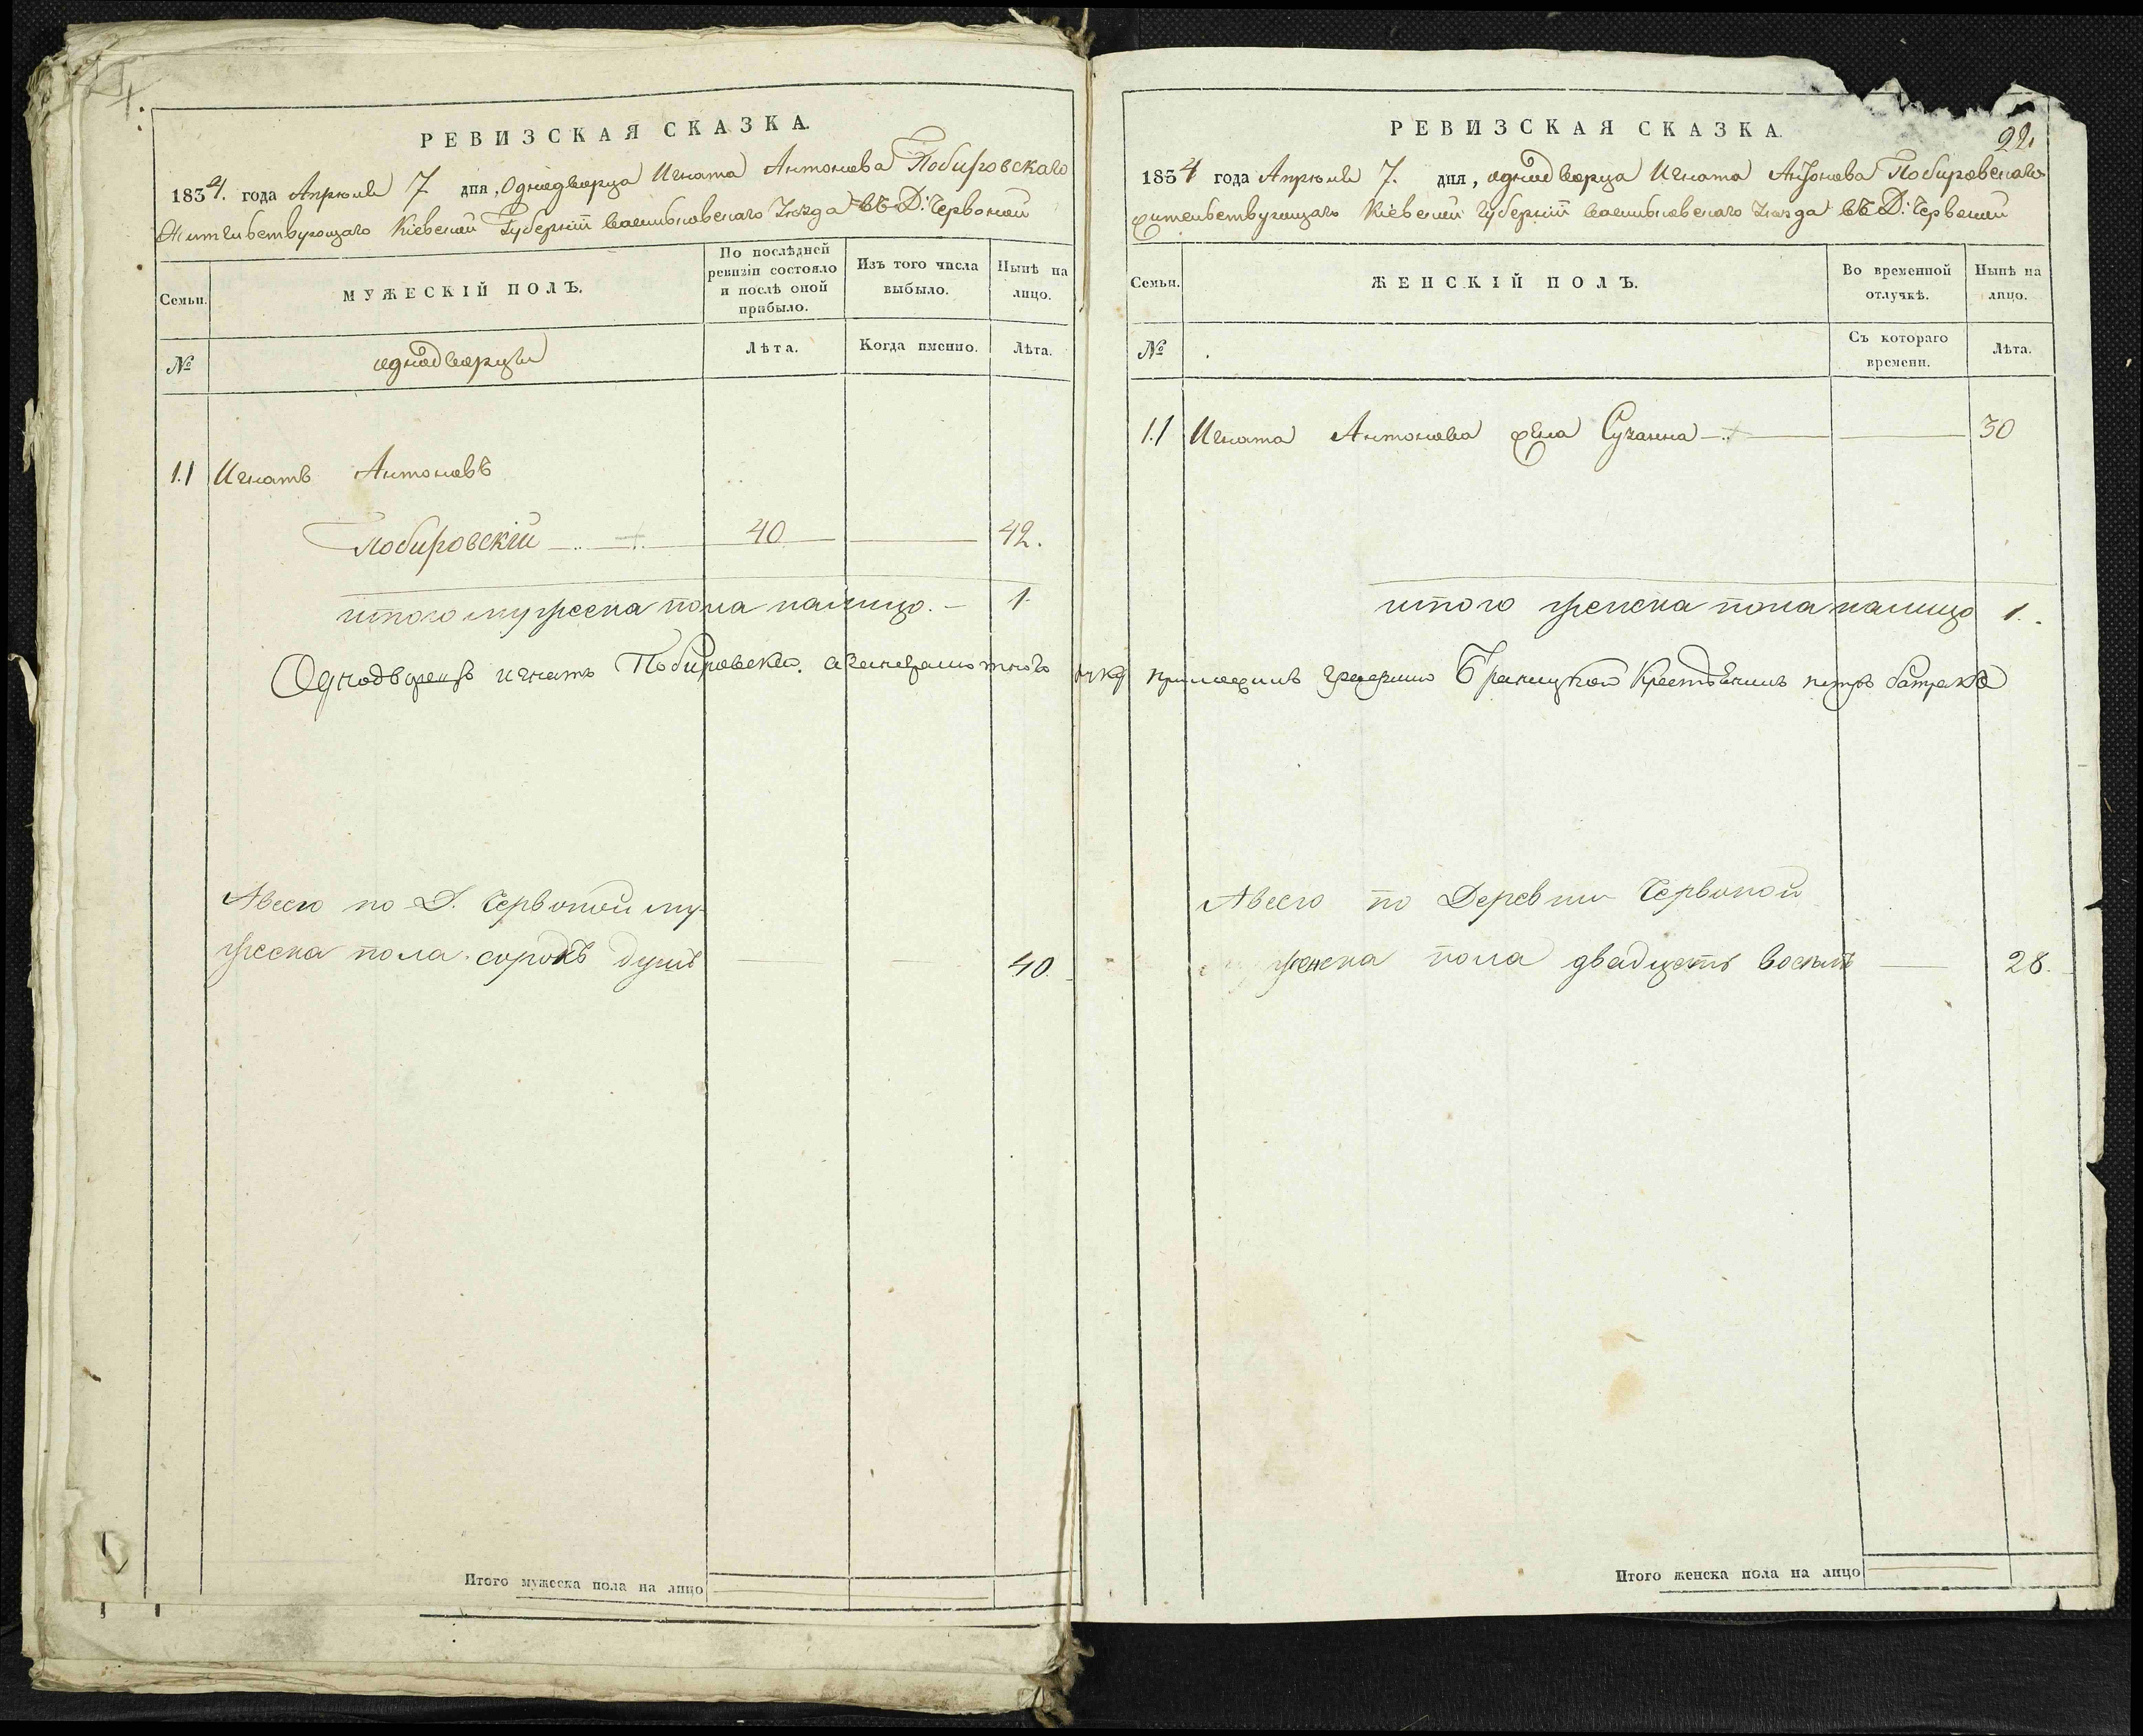 РЕВИЗСКАЯ СКАЗКА.
1834. года Апреля 7 дня, Однодворца Игната Антонова Побировскаго
Жительствующаго Кіевской Губерніи Васильковскаго Уезда въ Д: Червоной
Семьи.
МУЖЕСКІЙ ПОЛЪ.
По послѣдней ревизіи состояло и послѣ оной прибыло.
Изъ того числа выбыло.
Нынѣ на лицо.
№
однодворцы
Лѣта.
Когда именно.
Лѣта.
11 Игнатъ Антоновъ
Побировскій 40 42.
итого мужеска пола налицо. 1.
Однодворецъ игнатъ Побировски. азанеграмотного руку приложилъ графини Браницкой Крестьянинъ петръ
Авсего по Д. Червоной му-
жеска пола сорокъ душъ 40.
Итого мужеска пола на лицо
92.
РЕВИЗСКАЯ СКАЗКА.
1834 года Апреля 7. дня, однодворца Игната Антонова Побировскаго
жительствующаго Кіевской Губерніи Васильковскаго Уезда въ Д: Червоной
Семьи.
ЖЕНСКІЙ ПОЛЪ.
Во временной отлучкѣ.
Нынѣ на лицо.
№
Съ котораго времени.
Лѣта.
11 Игната Антонова жена Сузанна 30
итого женска пола налицо 1.
Авсего по Деревни Червоной
женска пола двадцать восемъ 28.
Итого женска пола на лицо